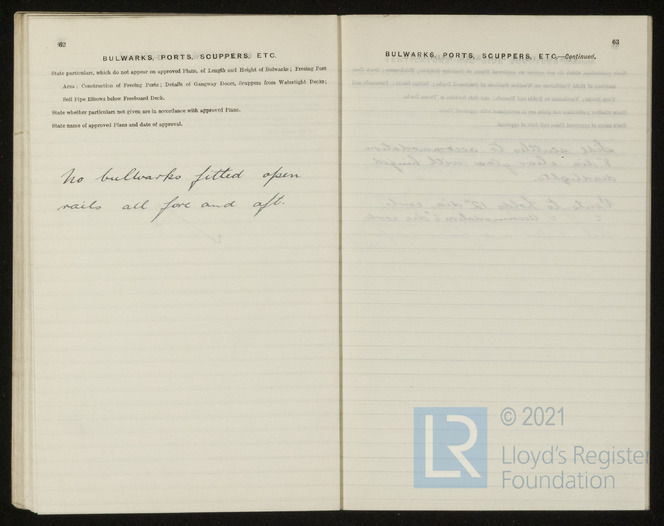 62
BULWARKS, PORTS, SCUPPERS, ETC.
State particulars, which do not appear on approved Plans, of Length and Height of Bulwarks; Freeing Port
Area; Construction of Freeing Ports; Details of Gangway Doors, Scuppers from Watertight Decks;
Soil Pipe Elbows below Freeboard Deck.
State whether particulars not given are in accordance with approved Plans.
State name of approved Plans and date of approval.
No bulwarks fitted open
rails all fore and aft.
63
BULWARKS, PORTS, SCUPPERS, ETC.—Continued.
LR
© 2021
Lloyd's Register
Foundation